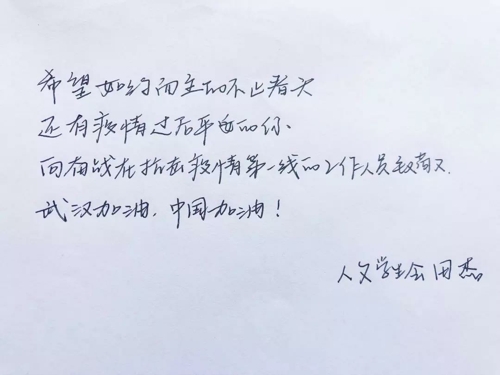 希望如约而至的不止春天
还有疫情过后平安的你.
向奋战在抗击疫情第一线的工作人员致敬.
武汉加油,中国加油!
人文学生会 田杰